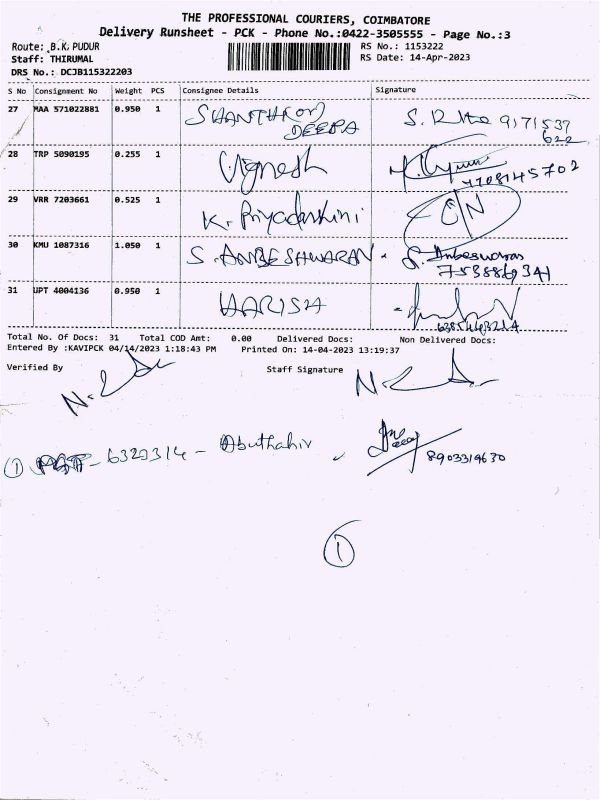 THE PROFESSIONAL COURIERS, COIMBATORE
Delivery Runsheet - PCK - Phone No.:0422-3505555 - Page No.:3
Route: B.K. PUDUR RS No.: 1153222
Staff: THIRUMAL RS Date: 14-Apr-2023
DRS No.: DCJB115322203
S No Consignment No Weight PCS Consignee Details Signature
27 MAA 571022881 0.950 1 DEEPA 9171537
622
28 TRP 5090195 0.255 1 Vignesh
29 VRR 7203661 0.525 1 K. Priyadarshini O/N
30 KMU 1087316 1.050 1 S. ANBESHWARAN S. Anbeswaran
7538869341
31 UPT 4004136 0.950 1 HARISH
Total No. Of Docs: 31 Total COD Amt: 0.00 Delivered Docs: Non Delivered Docs:
Entered By :KAVIPCK 04/14/2023 1:18:43 PM Printed On: 14-04-2023 13:19:37
Verified By Staff Signature
1 - 6323314 - Abuthahir 8903319630
1